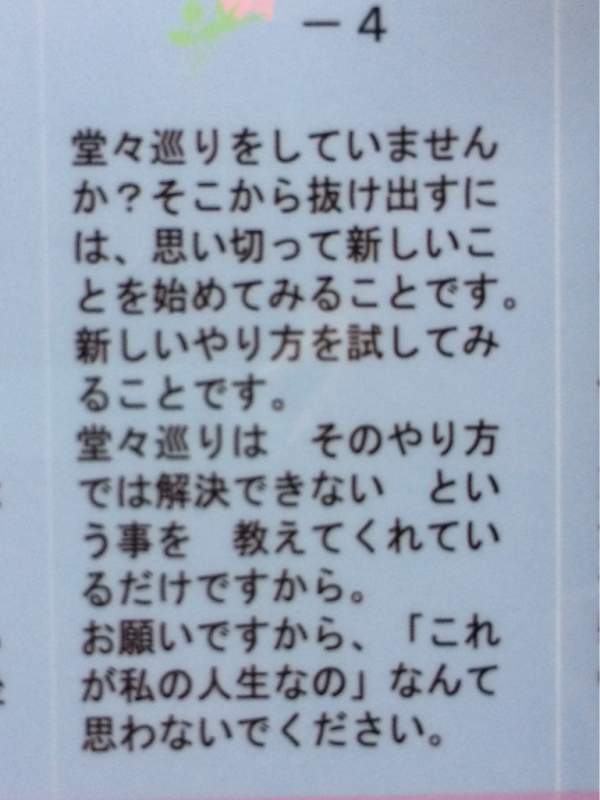 －4
堂々巡りをしていません
か？そこから抜け出すに
は、思い切って新しいこ
とを始めてみることです。
新しいやり方を試してみ
ることです。
堂々巡りは　そのやり方
では解決できない　とい
う事を　教えてくれてい
るだけですから。
お願いですから、「これ
が私の人生なの」なんて
思わないでください。